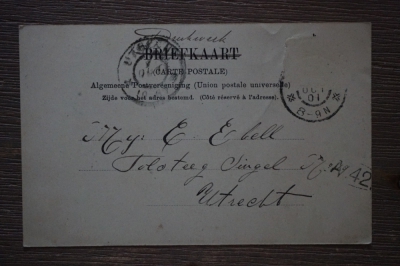 Drukwerk
BRIEFKAART
(CARTE POSTALE)
Algemeene Postvereeniging (Union postale universelle)
Zijde voor het adres bestemd. (Côté réservé à l'adresse).
OCT
01
8-9N
E Ebell
Singel
42
Utrecht